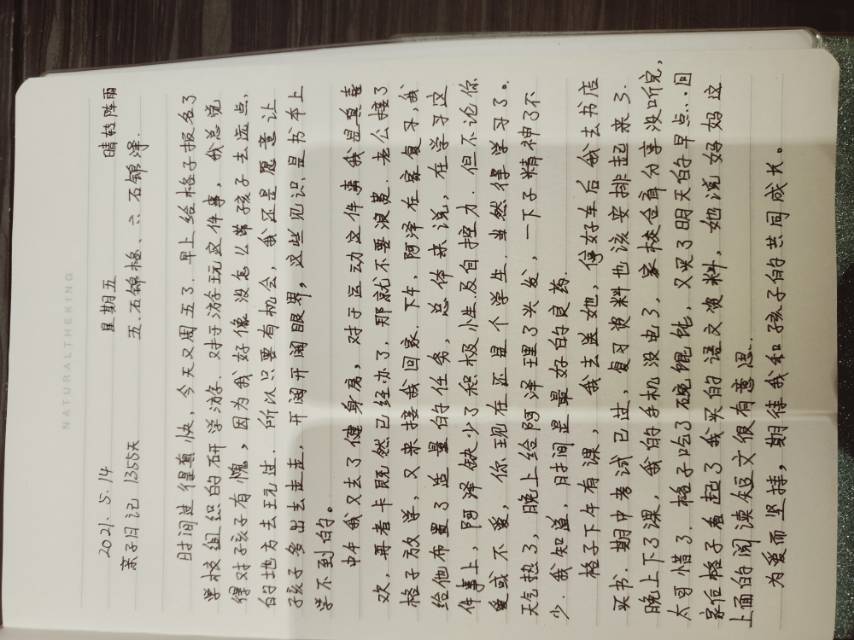 NATURALTHEKING
2021.5.14 星期五 晴转阵雨
亲子日记 1355天 五.石锦格、六石锦泽.
时间过得真快,今天又周五了.早上给格子报名了
学校组织的研学游.对于游玩这件事,我总觉
得对孩子有愧,因为我好像没怎么带孩子去远点,
的地方去玩过.所以只要有机会,我还是愿意让
孩子多出去走走,开阔开阔眼界,这些见识是书本上
学不到的。
中午我又去了健身房,对于运动这件事我是真喜
欢,再者卡既然已经办了,那就不要浪费.老公接了
格子放学,又来接我回家.下午,阿泽在家复习,我
给他布置了适量的任务,总体来说,在学习这
件事上,阿泽缺少了积极性及自控力.但不论你
爱或不爱,你现在还是个学生.当然得学习了。
天气热了,晚上给阿泽理了头发,一下子精神了不
少.我知道,时间是最好的良药.
格子下午有课,我去送她,停好车后我去书店
买书.期中考试已过,复习资料也该安排起来了.
晚上下了课,我的手机没电了,家校合育分享没听完,
太可惜了.格子吃了碗馄饨,又买了明天的早点…回
家后格子看起了我买的语文资料,她说妈妈这
上面的阅读短文很有意思.
为爱而坚持,期待我和孩子的共同成长。